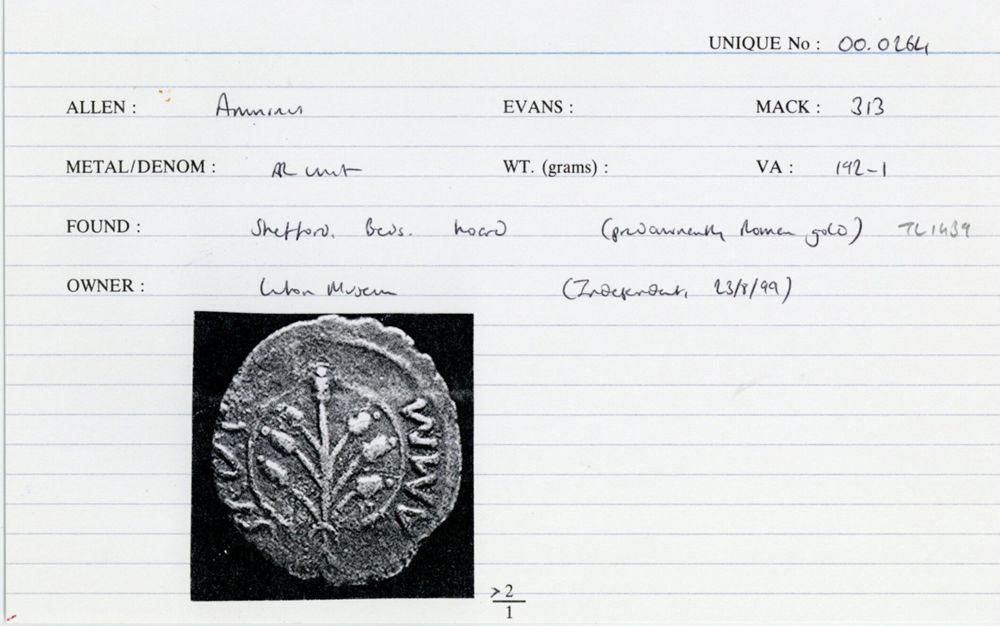 UNIQUE No : 00.0264
ALLEN : Amminus EVANS : MACK : 313
METAL/DENOM : AR unit WT. (grams) : VA : 192-1
FOUND : Shefford, Beds. hoard (predominently Roman gold) TL1439
OWNER : Luton Museum (Independent, 23/8/99)
AMMIN
2
1